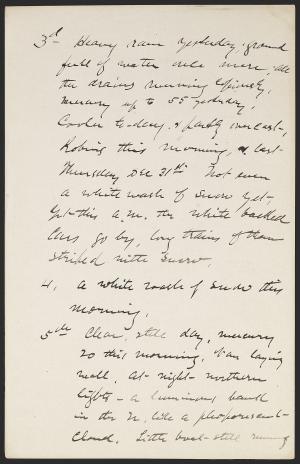 3d Heavy rain yesterday; ground
full of water once more, all
the drains running freely,
Mercury up to 55 yesterday,
Cooler to-day & partly overcast,
Robins this morning, & last
Thursday Dec 31st Not even
a white wash of snow yet,
Yet this a.m. the white backed
Cars go by, long trains of them
striped with snow.
4, a white wash of snow this
morning,
5th Clear, still day, mercury
20 this morning, Van laying
wall, At night northern
lights – a luminous bank
in the N. like a phosphorescent
Cloud. Little boat still running